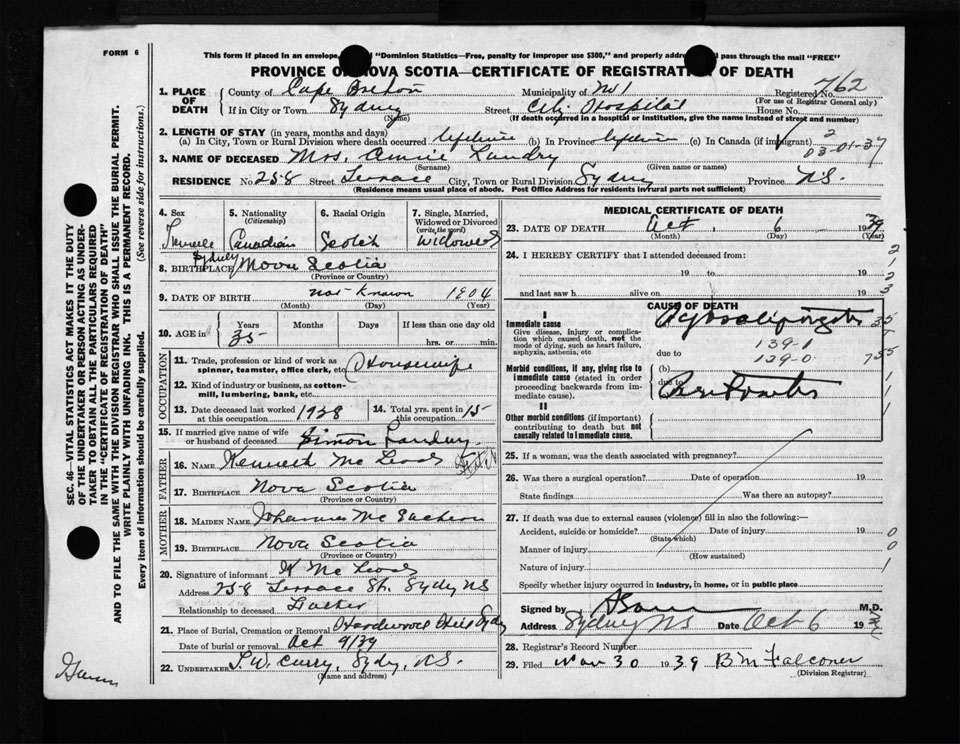 FORM 6
This form if placed in an envelope "Dominion Statistics—Free, penalty for improper use $300," and properly addre pass through the mail "FREE"
PROVINCE OF NOVA SCOTIA—CERTIFICATE OF REGISTRATION OF DEATH
1. PLACE OF DEATH { County of Cape Breton Municipality of No 1 Registered 762
(For use of Registrar General only)
If in City or Town Sydney Street City Hospital House No.
(Name) (If death occurred in a hospital or institution, give the name instead of street and number)
2. LENGTH OF STAY (in years, months and days)
(a) In City, Town or Rural Division where death occurred lifetime (b) In Province lifetime (c) In Canada (if immigrant)
2
03-01-37
3. NAME OF DECEASED Mrs. Annie Landry
(Surname) (Given name or names)
RESIDENCE No 258 Street Terrace City, Town or Rural Division Sydney Province N.S.
(Residence means usual place of abode. Post Office Address for residents in rural parts not sufficient)
4. Sex Female
5. Nationality (Citizenship) Canadian
6. Racial Origin Scotch
7. Single, Married, Widowed or Divorced (write the word) Widowed
8. BIRTHPLACE Sydney Nova Scotia
(Province or Country)
9. DATE OF BIRTH not Known 1904
(Month) (Day) (Year)
10. AGE in { Years Months Days If less than one day
35 hrs. or min.
OCCUPATION
11. Trade, profession or kind of work as spinner, teamster, office clerk, etc. Housewife
12. Kind of industry or business, as cotton-mill, lumbering, bank, etc.
13. Date deceased last worked at this occupation 1938
14. Total yrs. spent in this occupation 15
15. If married give name of wife or husband of deceased Simon Landry
FATHER
16. NAME Kenneth Mc Leod
17. BIRTHPLACE Nova Scotia
(Province or Country)
MOTHER
18. MAIDEN NAME Johanna Mc Eachern
19. BIRTHPLACE Nova Scotia
(Province or Country)
20. Signature of informant K Mc Leod
Address 258 Terrace St. Sydney NS
Relationship to deceased Father
21. Place of Burial, Cremation or Removal Hardwood Hill Sydney
Date of burial or removal Oct 9/39
22. UNDERTAKER T.W. Curry, Sydney, N.S.
(Name and address)
MEDICAL CERTIFICATE OF DEATH
23. DATE OF DEATH Oct 6 1939
(Month) (Day) (Year)
24. I HEREBY CERTIFY that I attended deceased from:
19 to 19
and last saw h alive on 19
2
1
2
3
CAUSE OF DEATH
I
Immediate cause
Give disease, injury or complication which caused death, not the mode of dying, such as heart failure, asphyxia, asthenia, etc
(a) Pyosalpingitis 35
139-1
due to 139-0 755
Morbid conditions, if any, giving rise to immediate cause (stated in order proceeding backwards from immediate cause).
(b)
due to
Peritonitis
1
1
1
II
Other morbid conditions (if important) contributing to death but not causally related to immediate cause.
25. If a woman, was the death associated with pregnancy?
26. Was there a surgical operation? Date of operation 19
State findings Was there an autopsy?
27. If death was due to external causes (violence) fill in also the following:—
Accident, suicide or homicide? Date of injury 19 0
(State which)
Manner of injury 0
(How sustained)
Nature of injury 1
Specify whether injury occurred in industry, in home, or in public place
Signed by M.D.
Address Sydney NS Date Oct 6 193
28. Registrar's Record Number
29. Filed Nov 30 1939 B M Falconer
(Division Registrar)
SEC. 46—VITAL STATISTICS ACT MAKES IT THE DUTY
OF THE UNDERTAKER OR PERSON ACTING AS UNDER-
TAKER TO OBTAIN ALL THE PARTICULARS REQUIRED
IN THE "CERTIFICATE OF REGISTRATION OF DEATH"
AND TO FILE THE SAME WITH THE DIVISION REGISTRAR WHO SHALL ISSUE THE BURIAL PERMIT.
WRITE PLAINLY WITH UNFADING INK. THIS IS A PERMANENT RECORD.
Every item of information should be carefully supplied. (See reverse side for instructions.)